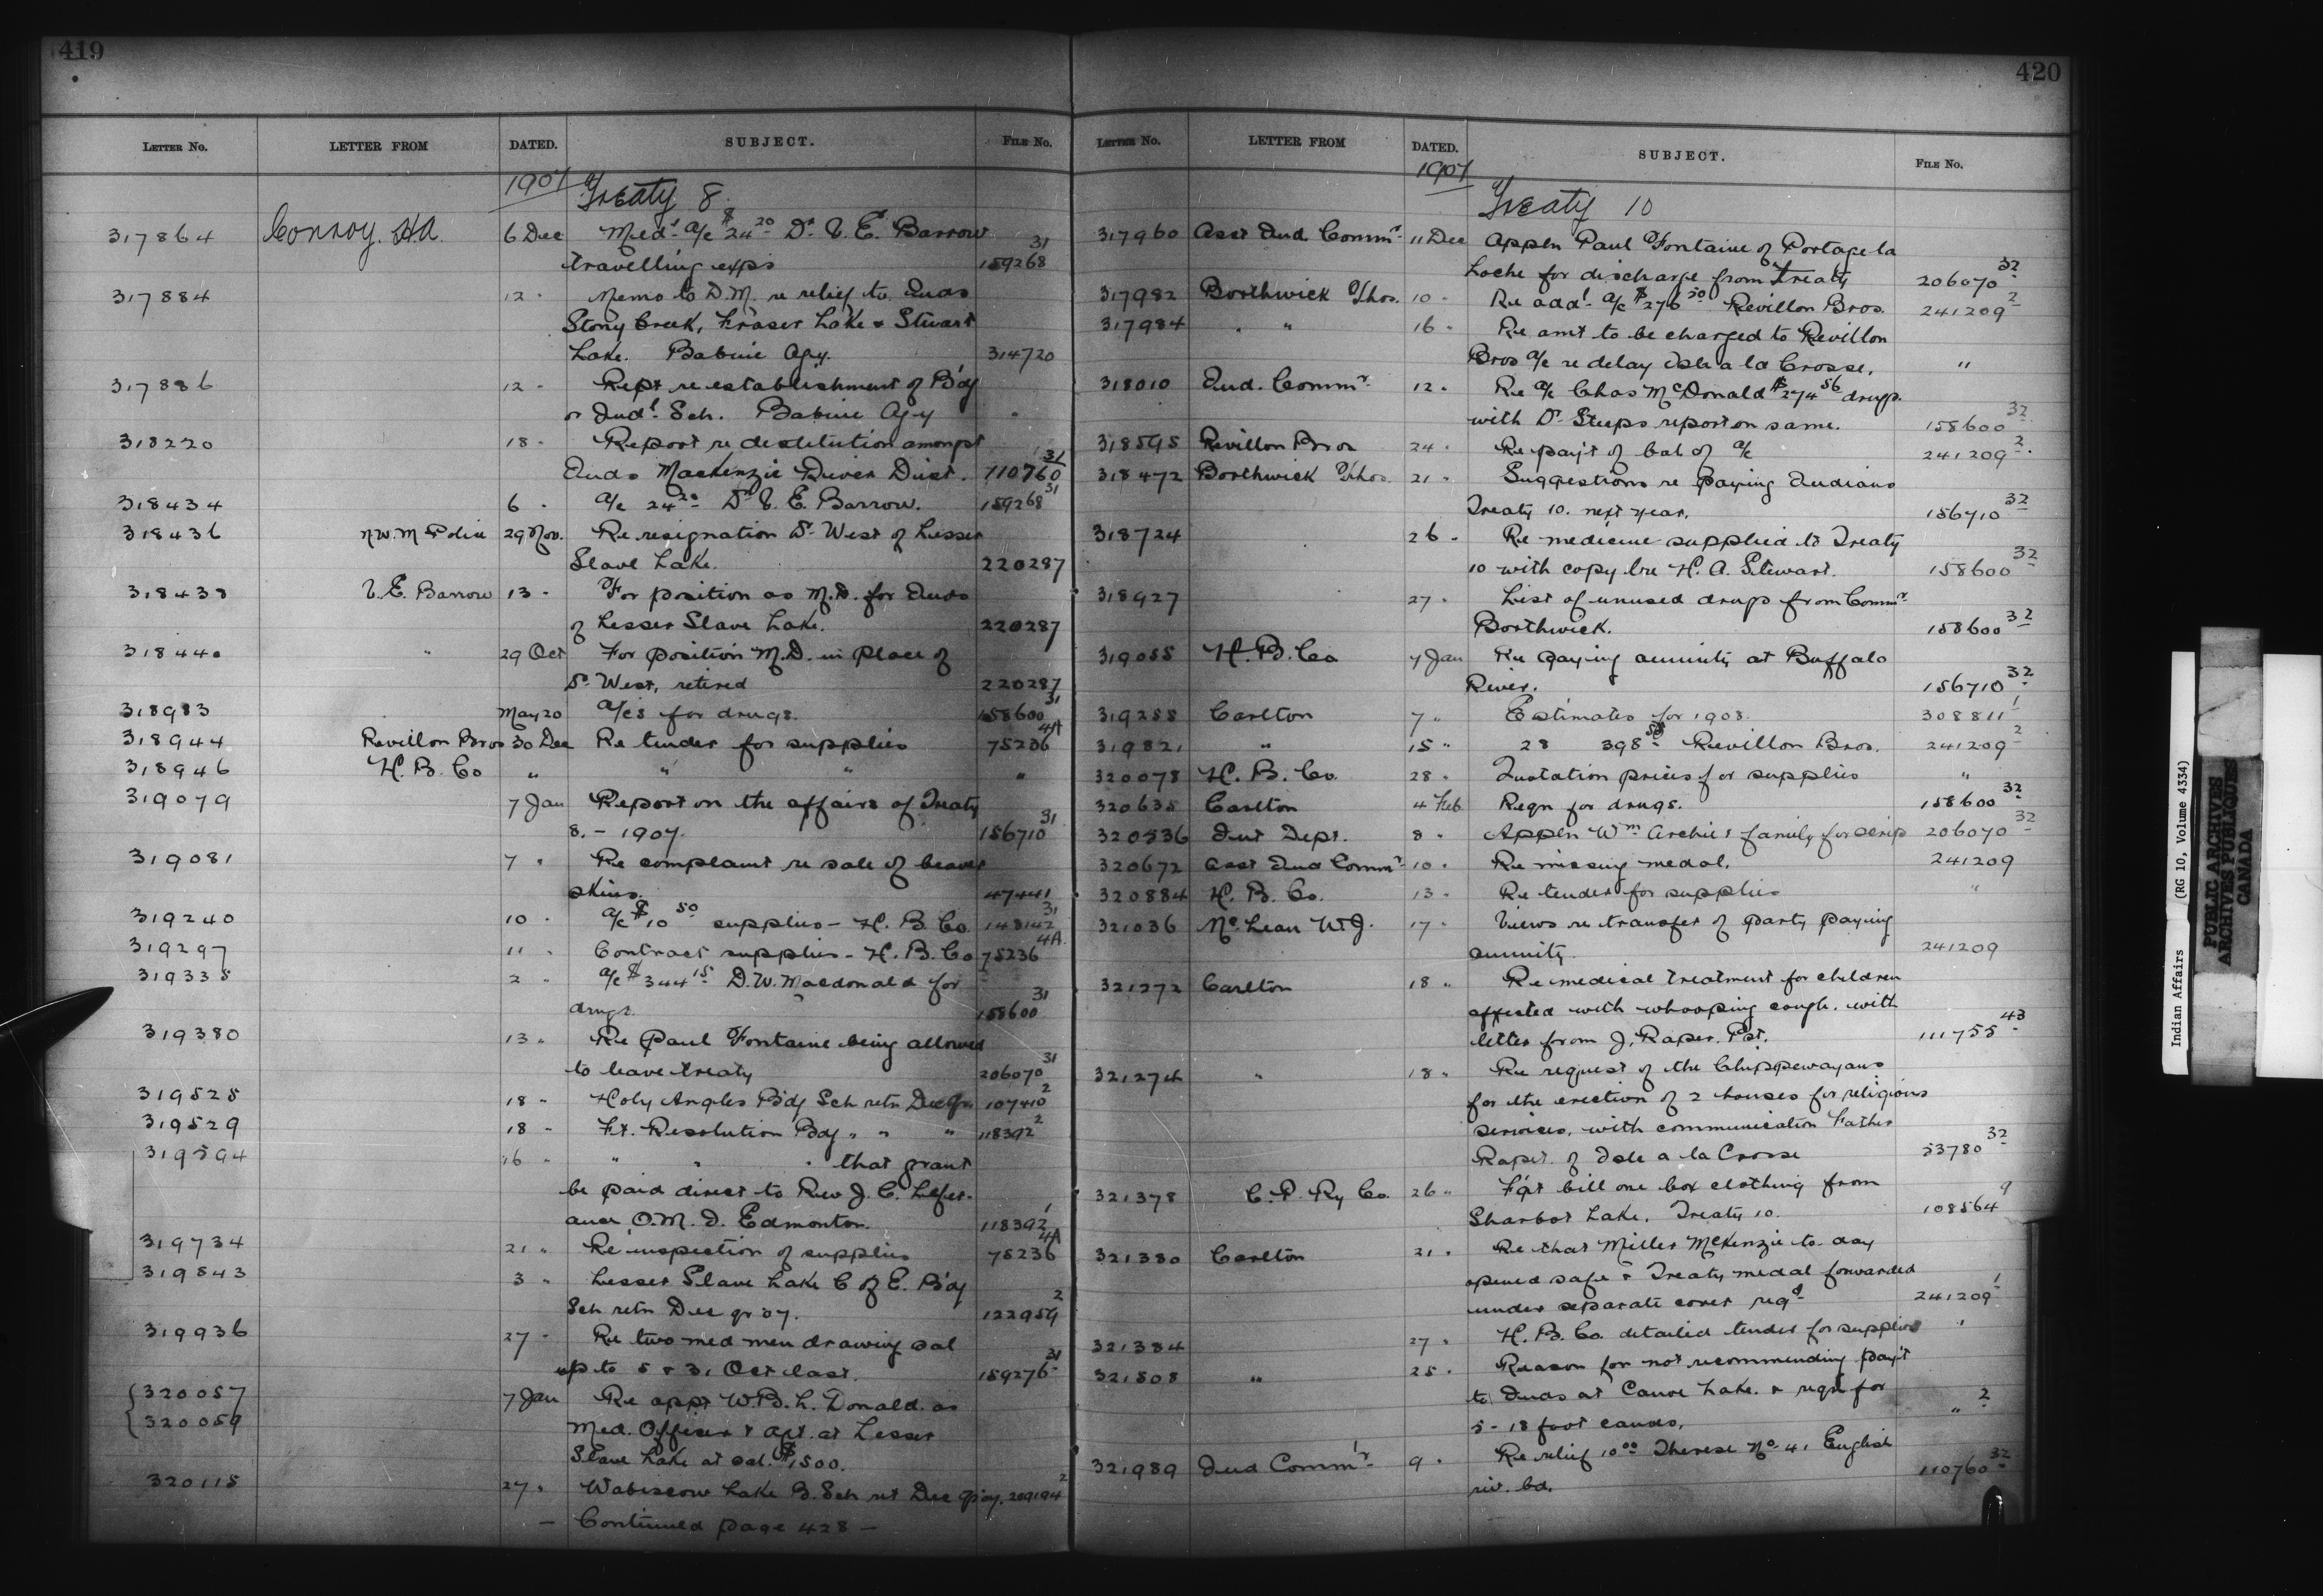 419
LETTER NO. LETTER FROM DATED. SUBJECT. FILE NO.
1907 Treaty 8
317864 Conroy. H.A. 6 Dec Med'l a/c $24 20 Dr. V. E. Barrow
travelling exps 159268 31
317884 12 " Memo to D.M. re relief to Inds
Stony Creek, Fraser Lake & Stuart
Lake. Babine Agy. 314720
317886 12 " Rept re establishment of B'dg
or Ind'l Sch. Babine Agy "
318220 18 " Report re destitution amongst
Inds Mackenzie River Dist. 110760 31
318434 6 " a/c 24 20 Dr V. E. Barrow. 159268 31
318436 N.W.M Police 29 Nov. Re resignation Dr West of Lesser
Slave Lake. 220287
318438 V. E. Barrow 13 " For position as M.D. for Inds
of Lesser Slave Lake. 220287
318440 " 29 Oct For position M.D. in place of
Dr West, retired 220287
318983 May 20 a/cs for drugs. 158600 31
318944 Revillon Bros 30 Dec Re tender for supplies 75236 4A
318946 H. B. Co " " " "
319079 7 Jan Report on the affairs of Treaty
8. - 1907. 156710 31
319081 7 " Re complaint re sale of beaver
skins. 47441
319240 10 " a/c $10 50 supplies - H. B. Co. 148142 31
319297 11 " Contract supplies - H. B. Co 75236 4A
319335 2 " a/c $344 15 D. W. Macdonald for
drugs. 158600 31
319380 13 " Re Paul Fontaine being allowed
to leave treaty 206070 31
319525 18 " Holy Angles B'dg Sch retn Dec Qr 107410 2
319529 18 " Ft. Resolution Bdg " " " 118392 2
319594 16 " " " " that grant
be paid direct to Rev J. C. Lefer-
auer O.M.I. Edmonton. 118392 1
319734 21 " Re inspection of supplies 75236 4A
319843 3 " Lesser Slave Lake C of E. B'dg
Sch retn Dec qr 07. 122959 2
319936 27 " Re two med men drawing sal
up to 5 & 31 Oct last. 159276 31
320057 7 Jan Re appt W.B. L. Donald as
320059 Med. Officer & Agt. at Lesser
Slave Lake at sal. $1500.
320115 27 " Wabiscow Lake B. Sch ret Dec Qr 07. 209194 2
- Continued page 428 -
420
LETTER NO. LETTER FROM DATED. SUBJECT. FILE NO.
1907 Treaty 10
317960 Asst Ind. Commr. 11 Dec Appln Paul Fontaine of Portage la
Loche for discharge from treaty 206070 32
317982 Borthwick Thos. 10 " Re add'l a/c $276 50 Revillon Bros. 241209 2
317984 " " 16 " Re amt to be charged to Revillon
Bros a/c re delay Isle a la Crosse. "
318010 Ind. Commr. 12 " Re a/c Chas McDonald $274 56 drugs.
with Dr Steeps report on same. 158600 32
318595 Revillon Bros 24 " Re pay't of bal of a/c 241209 2
318472 Borthwick Thos. 21 " Suggestions re paying Indians
Treaty 10. next year. 156710 32
318724 26 " Re medicine supplied to Treaty
10 with copy lre H. A. Stewart. 158600 32
318927 27 " List of unused drugs from Commr.
Borthwick. 158600 32
319055 H. B. Co 7 Jan Re paying annuity at Buffalo
River. 156710 32
319255 Carlton 7 " Estimates for 1908. 308811 1
319821 " 15 " 28 398 58 Revillon Bros. 241209 2
320078 H. B. Co. 28 " Quotation prices for supplies "
320635 Carlton 4 Feb Reqn for drugs. 158600 32
320536 Int Dept. 8 " Appln Wm Archie & family for scrip 206070 32
320672 Asst Ind Commr 10 " Re missing medal. 241209
320884 H. B. Co. 13 " Re tender for supplies "
321036 McLean W.J. 17 " Views re transfer of party paying
annuity 241209
321272 Carlton 18 " Re medical treatment for children
affected with whooping cough. with
letter from J. Raper. Pst. 111755 43
321274 " 18 " Re request of the Chippewayans
for the erection of 2 houses for religious
services, with communication Father
Rapet. of Isle a la Crosse 53780 32
321378 C. P. Ry Co. 26 " F'gt bill one box clothing from
Sharbot Lake. Treaty 10. 108564 9
321380 Carlton 21 " Re that Miller McKenzie to day
opened safe & Treaty medal forwarded
under separate cover reqd. 241209 1
321384 27 " H. B. Co. detailed tender for supplies "
321508 " 25 " Reason for not recommending pay't
to Inds at Canoe Lake. & reqn for
5 - 18 foot canoes. " 2
321989 Ind Commr. 9 " Re relief 10 00 Therese No. 41 English
riv. bd. 110760 32
Indian Affairs (RG 10, Volume 4334)
PUBLIC ARCHIVES
ARCHIVES PUBLIQUES
CANADA